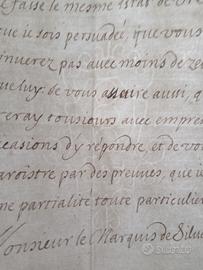 faise le mesme estat de
que ie sois persuadé, que vous
inuerez pas auec moins de
que luy. de vous assure aussi, q
eray tousiours auec empres
casions d'y régondre, et de vo
aroistre par des preuues, que i
ne partialité toute particulier
Monsieur le Marquis de Silu
subito